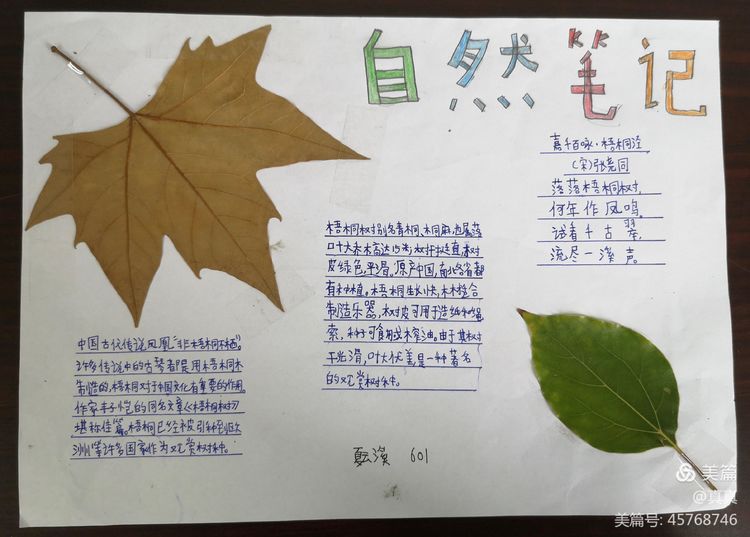 自然笔记
嘉禾百咏·梧桐泾
(宋)张尧同
落落梧桐树,
何年作凤鸣.
试看千古翠,
流尽一溪声。
梧桐树别名青桐、桐麻,也属落
叶大乔木高达15米;树干挺直,树
皮绿色,平滑,原产中国,南北各省都
有种植。梧桐生长快,木材适合
制造乐器,树皮可用于造纸和绳
索,种子可食用或榨油。由于其树
干光滑,叶大优美,是一种著名
的观赏树种。
中国古代传说凤凰“非梧桐不栖”。
许多传说中的古琴都是用梧桐木
制造的,梧桐对于中国文化有重要的作用。
作家丰子恺的同名文章《梧桐树》
堪称佳篇。梧桐已经被引种到欧
洲等许多国家作为观赏树种。
601
美篇
@真真
美篇号: 45768746